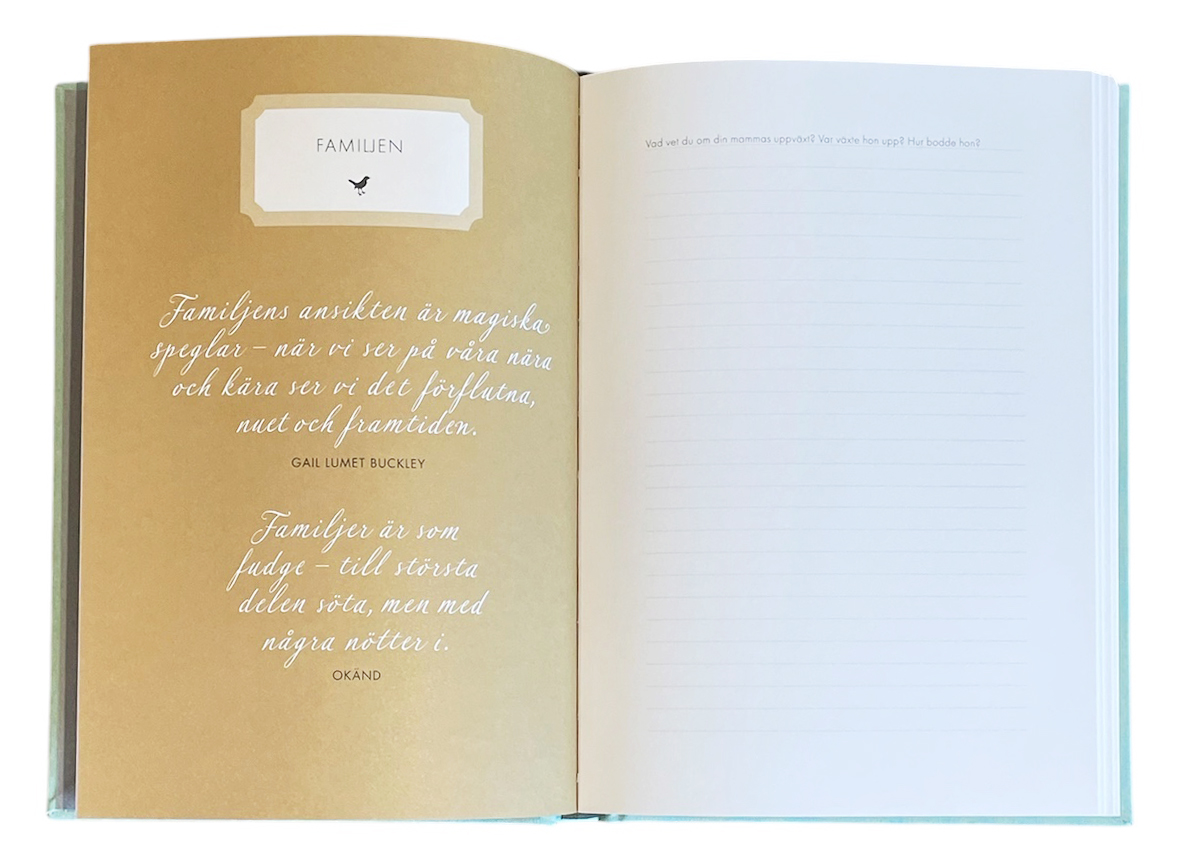 FAMILJEN
Familjens ansikten är magiska
speglar – när vi ser på våra nära
och kära ser vi det förflutna,
nuet och framtiden.
GAIL LUMET BUCKLEY
Familjer är som
fudge – till största
delen söta, men med
några nötter i.
OKÄND
Vad vet du om din mammas uppväxt? Var växte hon upp? Hur bodde hon?